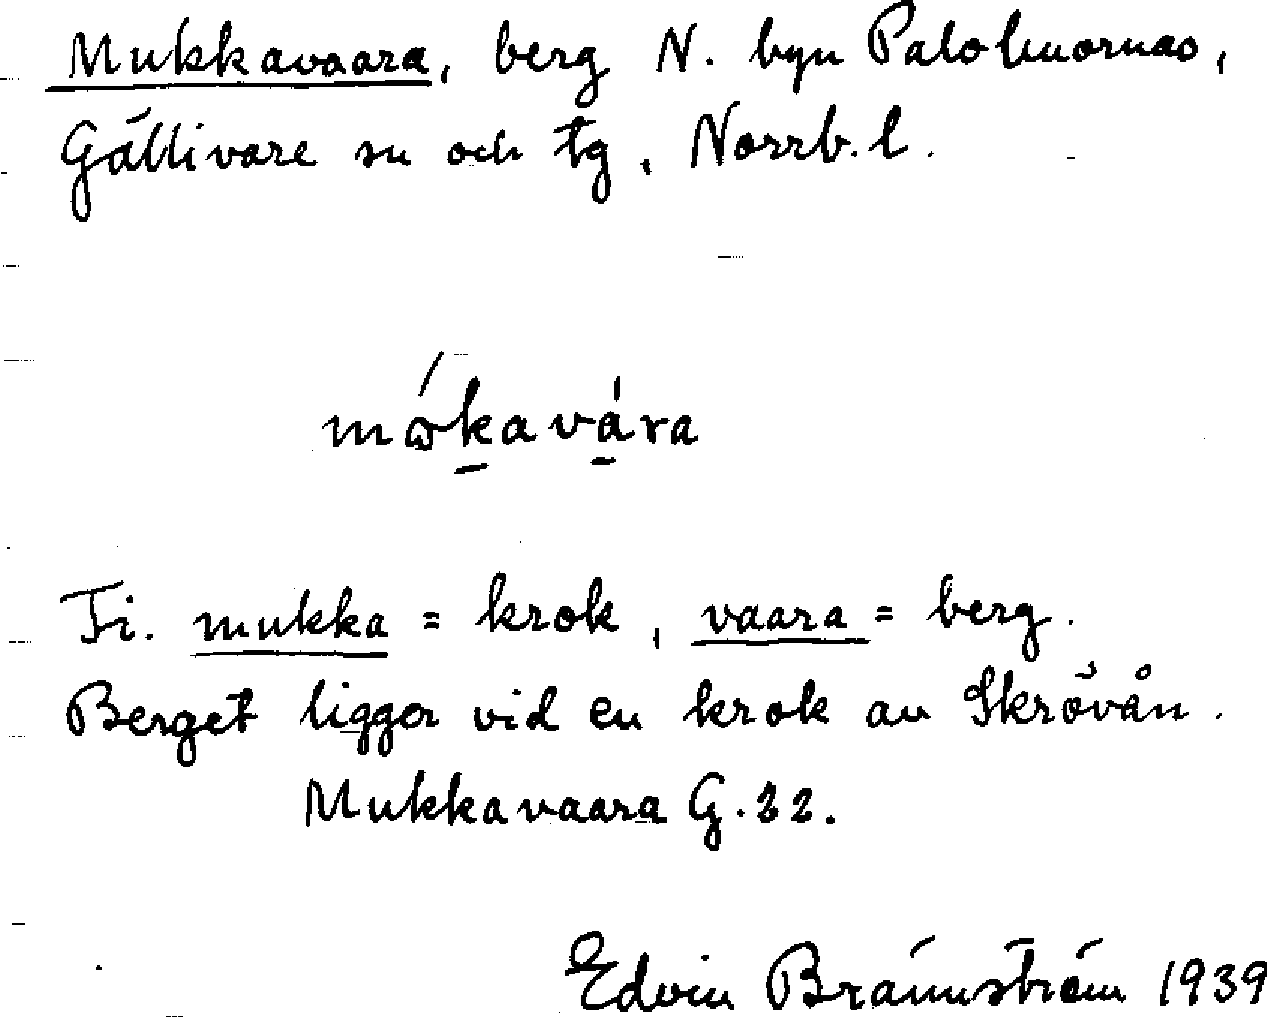 Mukkavaara, berg N. byn Palohuornas,
Gällivare sn och tg, Norrb. l.
Fi. mukka = krok, vaara = berg.
Berget ligger vid en krok av Skrövån.
Mukkavaara G. 22.
Edvin Brännström 1939